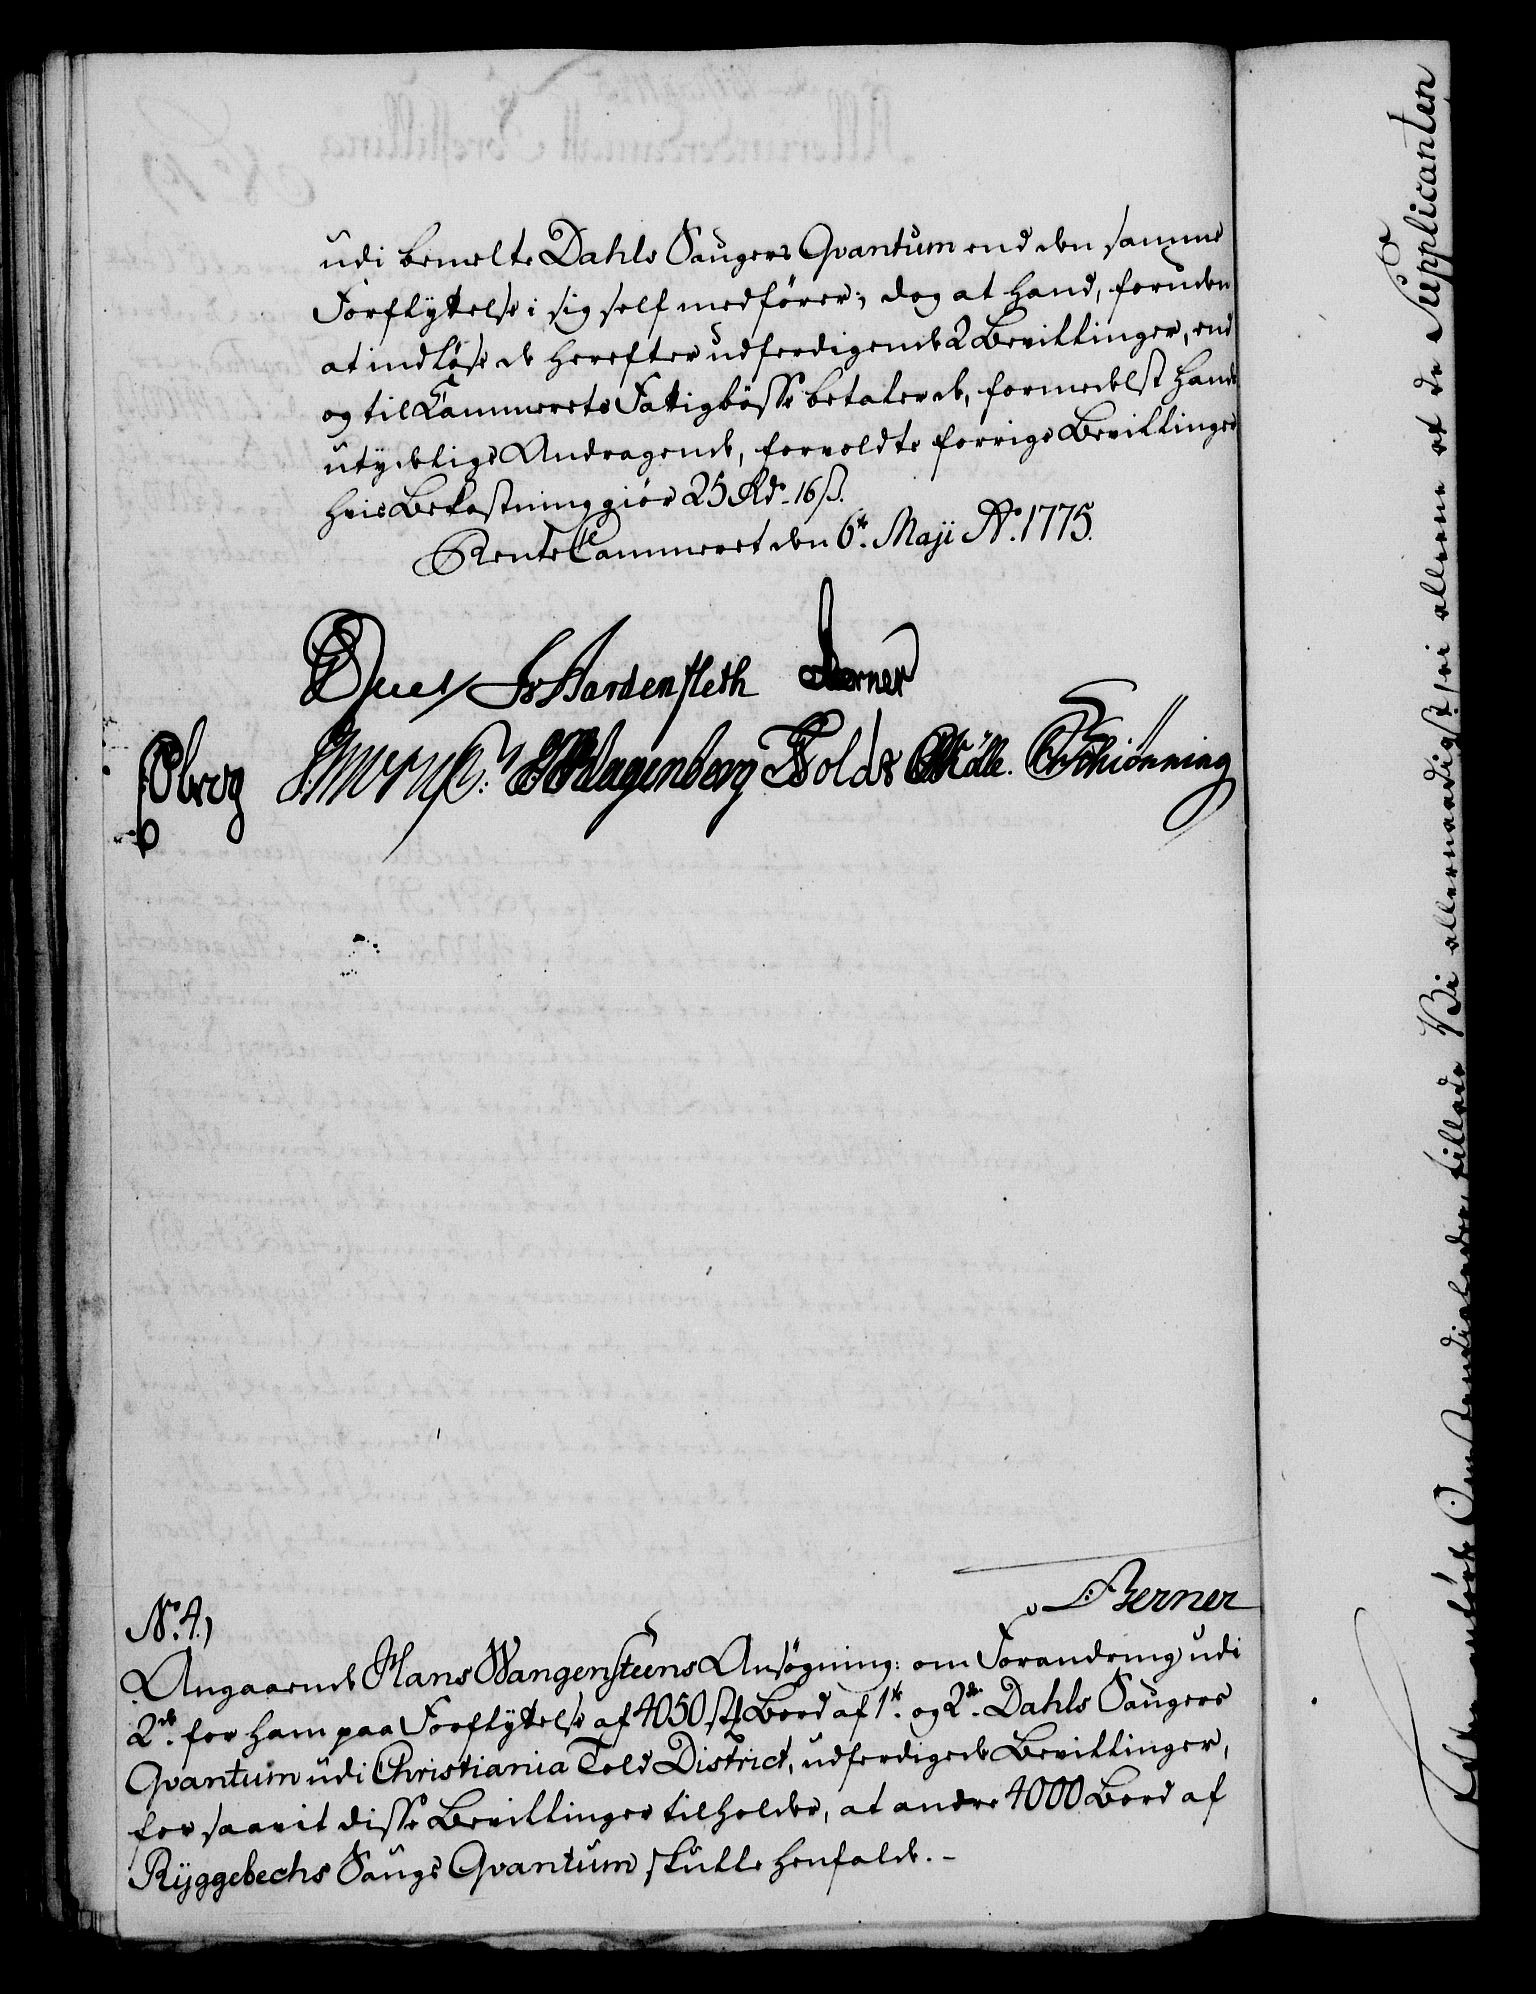 udi bemelte Dahls Saugers Qvantum end den samme
Forflÿttelse i sig self medfører; dog at hand, foruden
at indløse de herefter udferdigende 2 Bevillinger, end
og til Cammerets Fattigbøsse betaler de, formedelst hands
utÿdelige Andragende, forvoldte forrige Bevillinger
hvis Bekostning giør 25 Rdr. 16 ß.
RenteCammeret den 6te Maji Ao. 1775.
FvHardenfleth Berner
Obrog Wagenberg Holdt Mølle. Schiønning
Berner
No. 4.)
Angaaende Hans Wangensteens Ansøgning: om Forandring udi
2de for ham paa Forflÿttelse af 4050 st. Bord af 1te og 2de Dahls Saugers
Qvantum udi Christiania Told District, udferdigede Bevillinger,
for saavit disse Bevillinger tilholder, at andre 4000 Bord af
Rÿggebechs Saugs Qvantum skulle henfalde. -
Efter anførte Omstændigheder, tillade Vi allernaadigst, at de Supplicanten